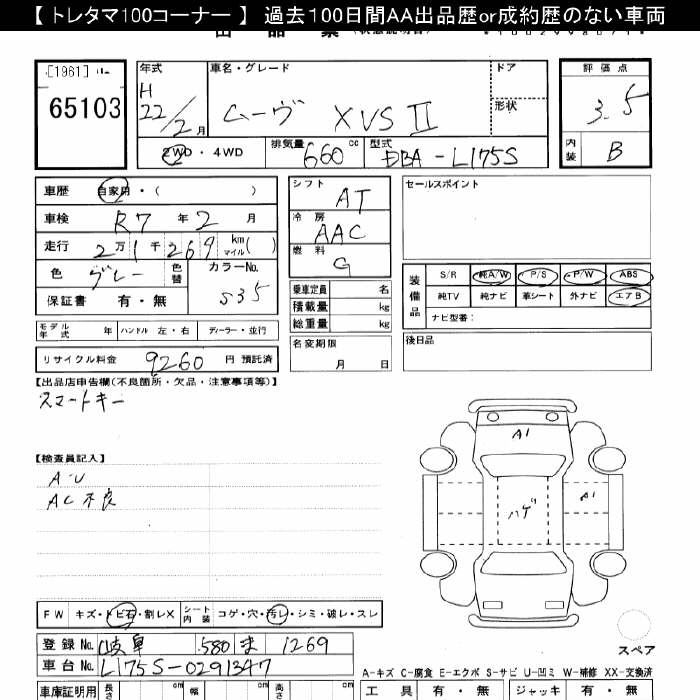 【 トレタマ100コーナー 】 過去100日間AA出品歴or成約歴のない車両
[1961]
65103
年式
H
22/2月
車名・グレード
ムーヴ XVSⅡ
ドア
形状
評価点
3.5
内装
B
2WD・4WD
排気量 660 cc
型式 DBA-L175S
車歴 自家用・( )
車検 R7 年 2 月
走行 2万1千269 km マイル( )
色 グレー
色替
カラーNo. S35
保証書 有・無
シフト AT
冷房 AAC
燃料 G
乗車定員 名
積載量 kg
総重量 kg
名変期限
月 日
セールスポイント
装備品
S/R 純A/W P/S P/W ABS
純TV 純ナビ 革シート 外ナビ エアB
ナビ型番:
後日品
モデル年式 年 ハンドル 左・右 ディーラー・並行
リサイクル料金 9260 円 預託済
【出品店申告欄(不良箇所・欠品・注意事項等)】
スマートキー
【検査員記入】
A-U
AC不良
A1
ハゲ
A1
FW キズ・トビ石・割レX シート内装 コゲ・穴・汚レ・シミ・破レ・スレ
登録No. 岐阜 580 ま 1269
車台No. L175S-0291347
スペア
A-キズ C-腐食 E-エクボ S-サビ U-凹ミ W-補修 XX-交換済
車庫証明用 長さ cm 幅 cm 高さ cm
工具 有・無 ジャッキ 有・無